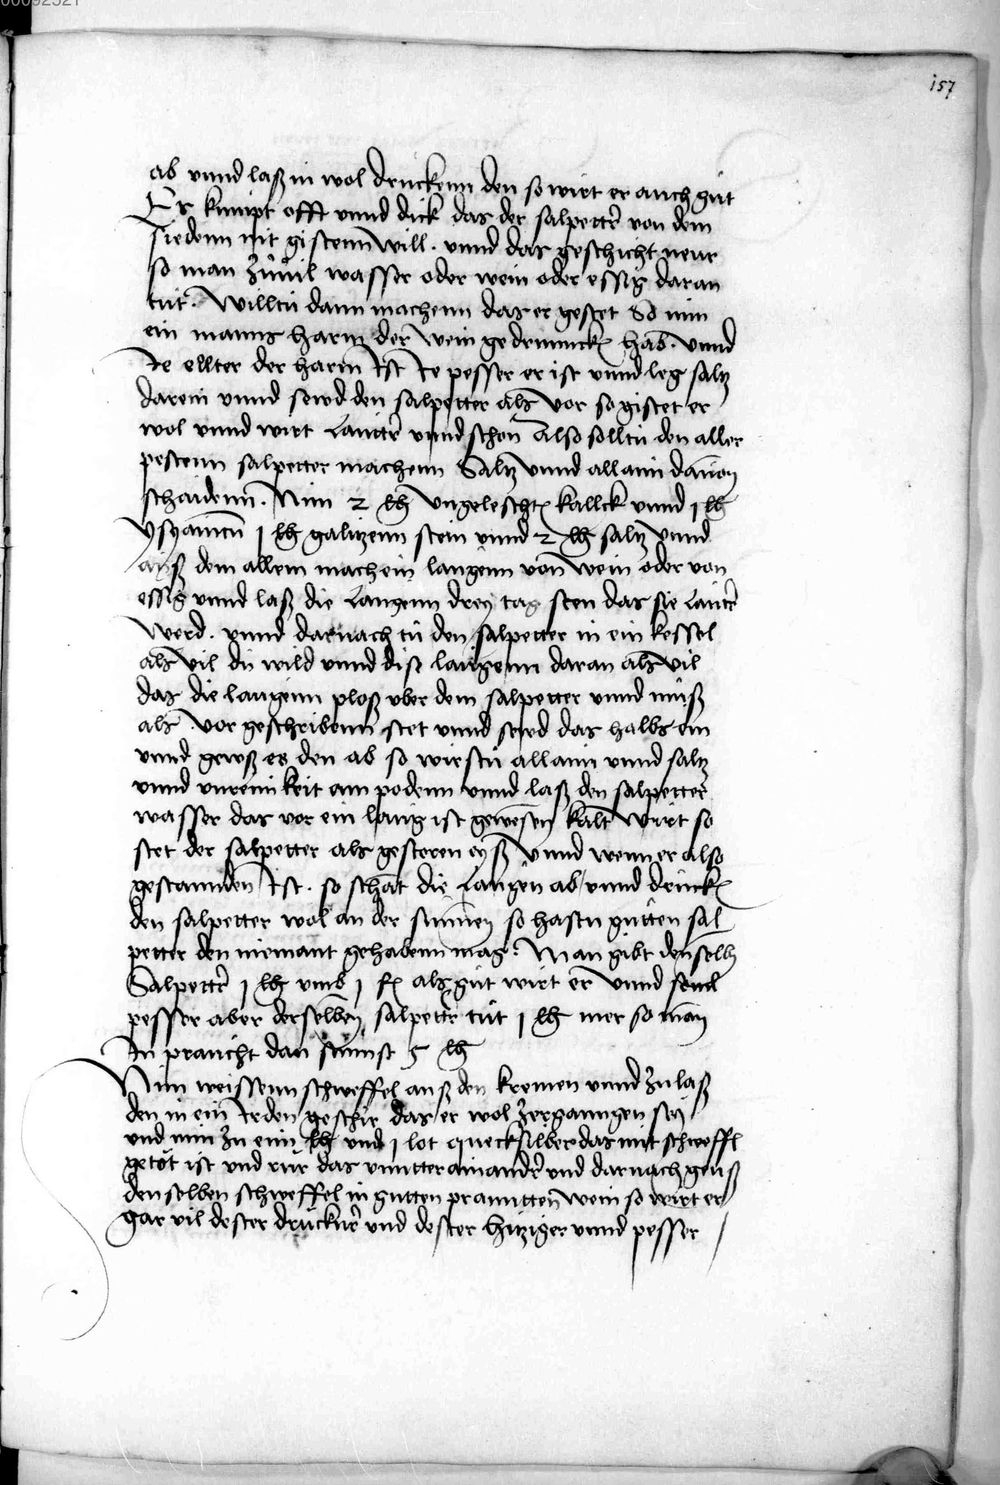 00092521
157
ab vnnd laß in wol druckenn den so wirt er auch gut
Es kumpt offt vnnd dick das der salpetter von dem
siedenn nit gistenn will . vnnd das geschicht neur
so man zuuil wasser oder wein oder essig daran
tut . Willtu dann machenn das er gestet So nim
ein manns harm der wein gedrunnck hab . vnnd
Je ellter der harm Ist Je pesser er ist vnnd leg saltz
darein vnnd sewd den salpetter als vor so gistet er
wol vnnd wirt Lautter vnnd schon Also solltu den aller
pestenn salpetter machenn Saltz vnnd allaun dauon
schaidenn . Nim 2 lb vngelescht kallck vnnd 1 lb
1 lb galitzenn stein vnnd 2 lb saltz vnnd
auß dem allem mach ein laugenn von wein oder von
essig vnnd laß die Laugenn drey tag sten das sie Lauter
werd . vnnd darnach tu den salpetter in ein kessel
als vil du wild vnnd dise laugenn daran als vil
das die laugenn ploß vber dem salpetter vnnd muß
als vor geschribenn stet vnnd sewd das halbs ein
vnnd gewß es den ab so wirstu allaun vnnd saltz
vnnd vnreinikeit am podenn vnnd laß den salpetter
wasser das vor ein laug ist gewesen kalt wirt so
stet der salpetter als gefroren eyß vnnd wenn er also
gestannden Ist . so schat die Laugen ab vnnd druck
den salpetter wol an der sunnen so hastu gutten sal
petter den niemant gehabenn mag . Man gibt denselb
Salpetter 1 lb vmb 1 fl als gut wirt er vnnd
pesser aber derselben salpetter tut 1 lb mer so man
In praucht dan sunst 5 lb
Nim weissenn schweffel auß den kremen vnnd zulaß
den in ein Irden geschir das er wol zergangen sey
vnd nim zu eim lb vnd 1 lot quecksilber das mit schweffl
getot ist vnd rur das vnntter ainander vnd darnach geuß
den selben schweffel in gutten pranntten wein so wirt er
gar vil dester vnd dester hitziger vnnd pesser